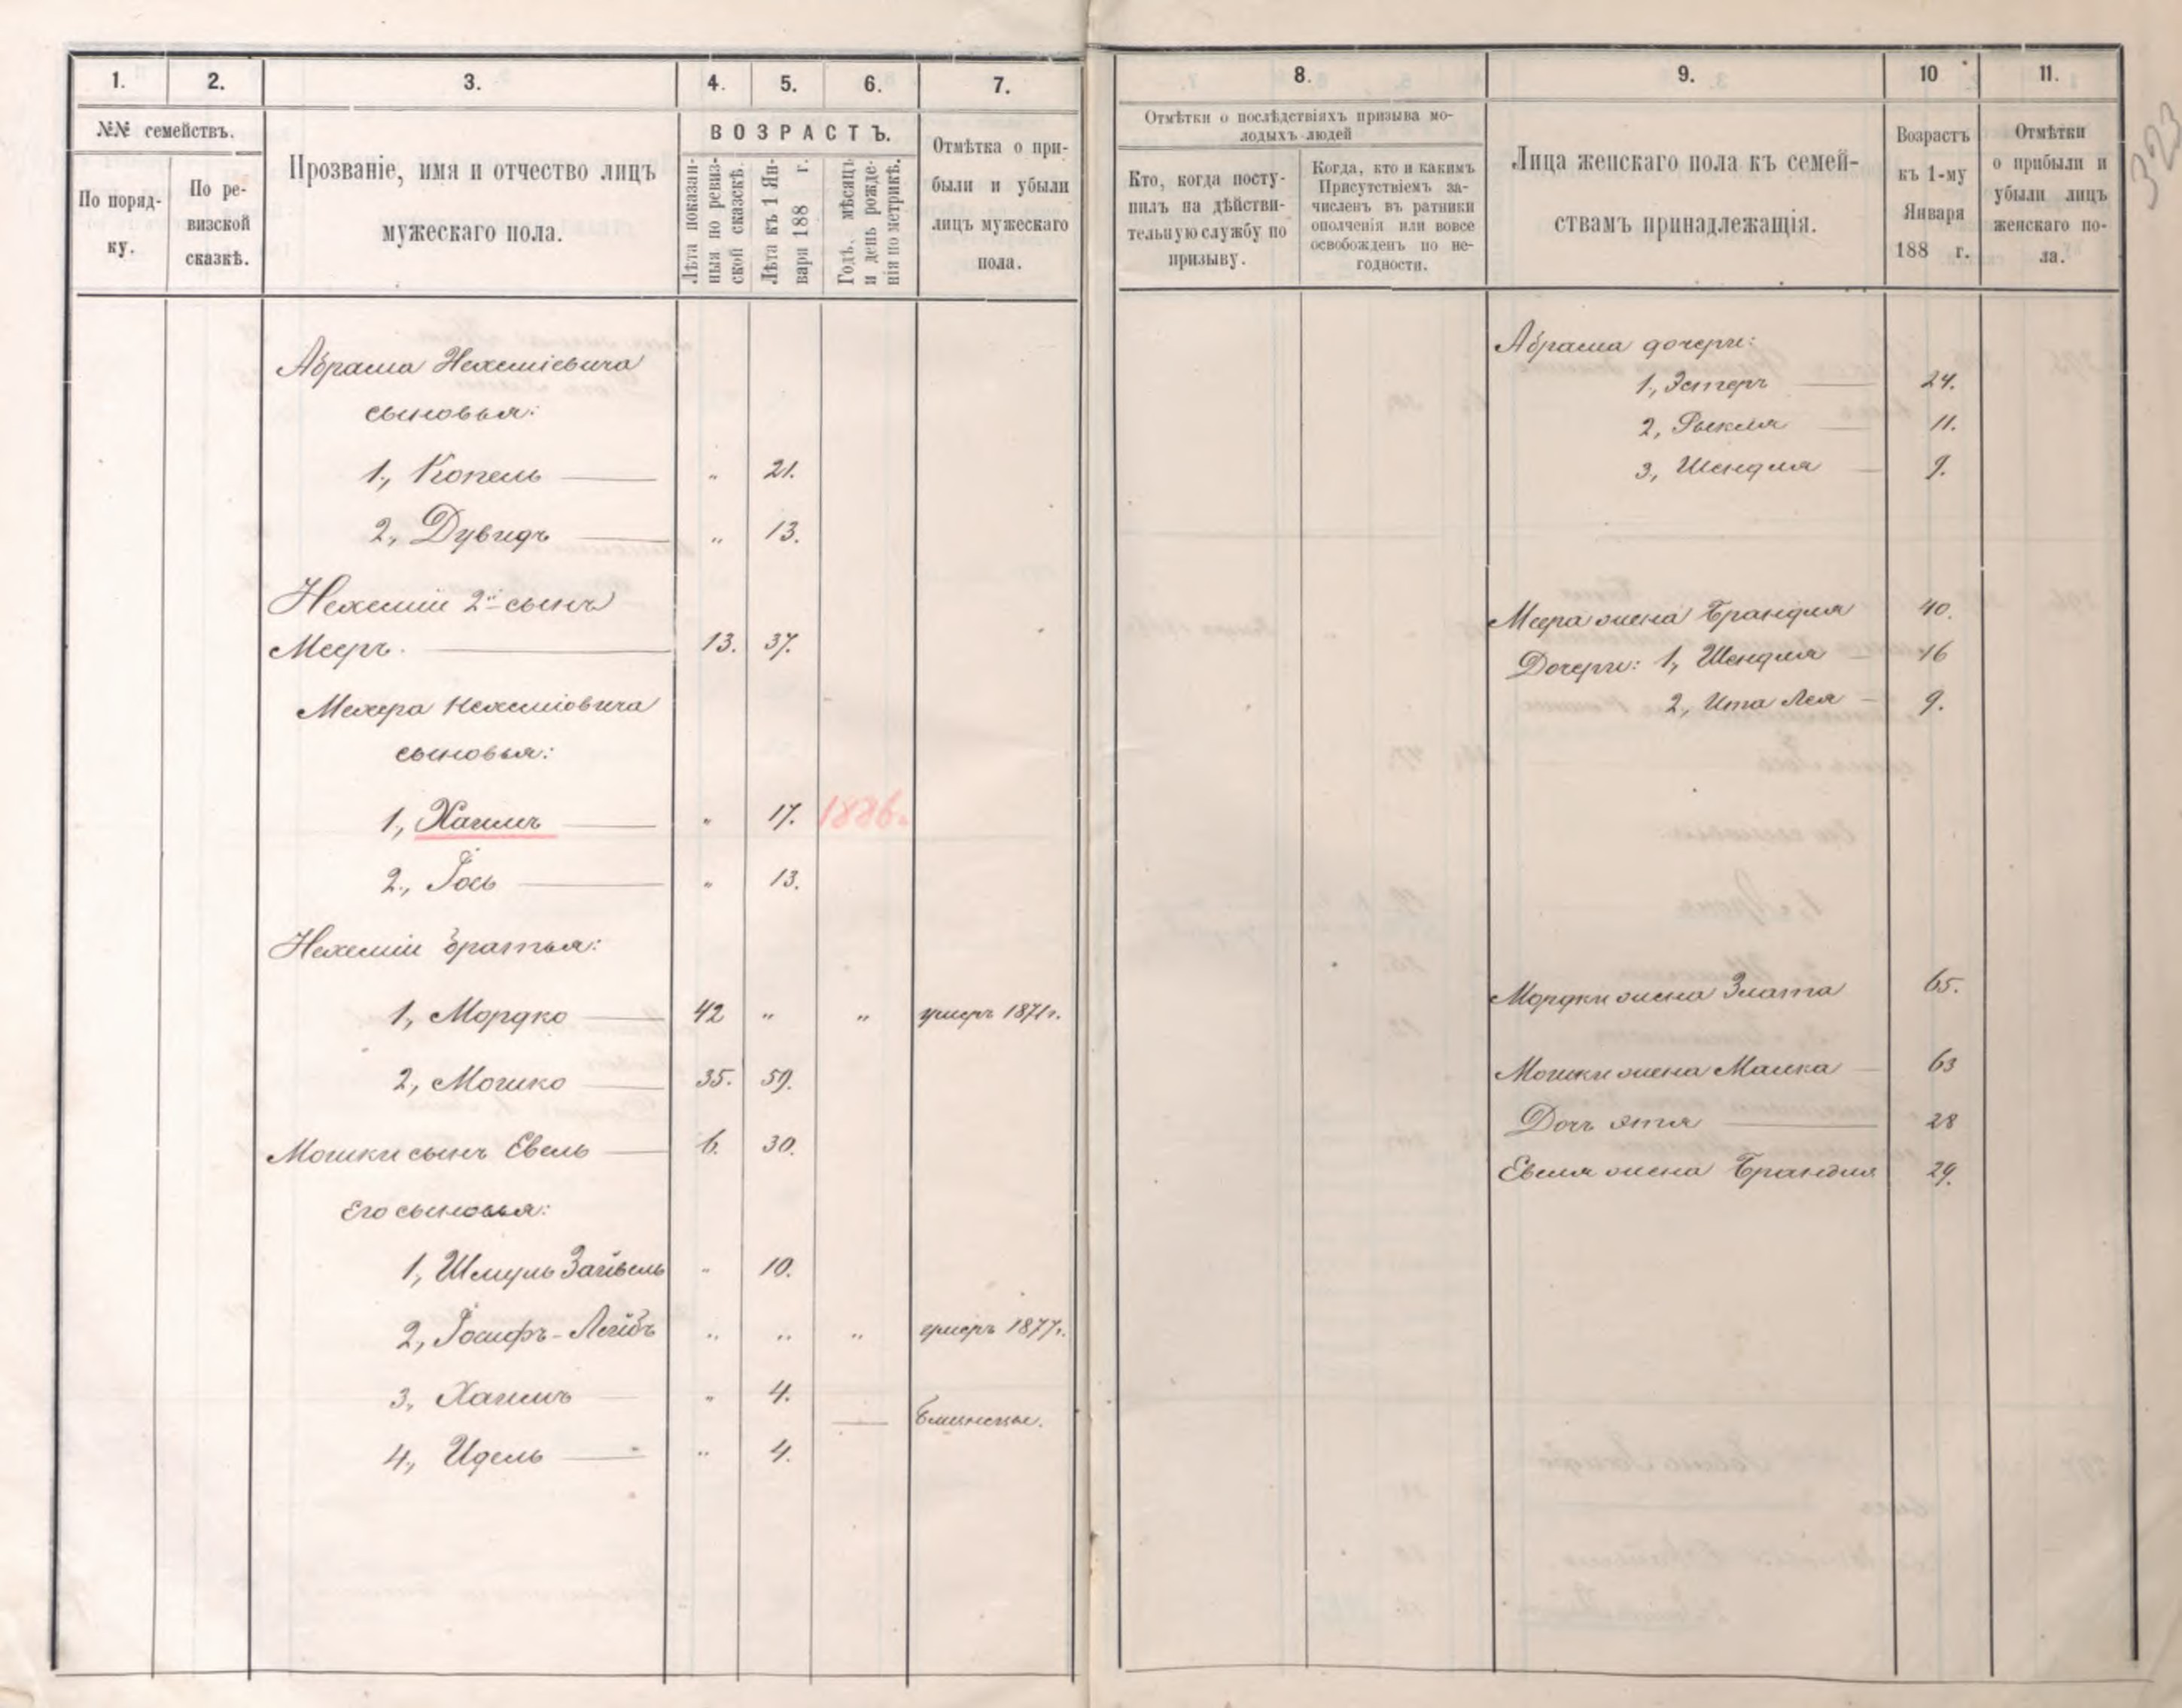 1.
2.
3.
4.
5.
6.
7.
№№ семействъ.
По поряд-
ку.
По ре-
визской
сказкѣ.
Прозваніе, имя и отчество лицъ
мужескаго пола.
ВОЗРАСТЪ.
Лѣта показан-
ныя по ревиз-
ской сказкѣ.
Лѣта къ 1 Ян-
варя 188 г.
Годъ, мѣсяцъ
и день рожде-
нія по метрикѣ.
Отмѣтка о при-
были и убыли
лицъ мужескаго
пола.
Абрама Нехеміевича
сыновья:
1., Копель — „ 21.
2, Дувидъ — „ 13.
Нехеміи 2й сынъ
Мееръ. — 13. 37.
Меера Нехеміовича
сыновья:
1., Хаимъ — „ 17. 1886г.
2., Іось — „ 13.
Нехеміи братья:
1, Мордко — 42 „ „ умеръ 1871г.
2, Мошко — 35. 59.
Мошки сынъ Евель — 6. 30.
Его сыновья:
1, Шмуль Зайвель „ 10.
2, Іосифъ-Лейбъ „ „ „ умеръ 1877г.
3, Хаимъ — „ 4.
— Близнецы.
4, Идель — „ 4.
8.
9.
10
11.
323
Отмѣтки о послѣдствіяхъ призыва мо-
лодыхъ людей
Кто, когда посту-
пилъ на дѣйстви-
тельную службу по
призыву.
Когда, кто и какимъ
Присутствіемъ за-
численъ въ ратники
ополченія или вовсе
освобожденъ по не-
годности.
Лица женскаго пола къ семей-
ствамъ принадлежащія.
Возрастъ
къ 1-му
Января
188 г.
Отмѣтки
о прибыли и
убыли лицъ
женскаго по-
ла.
Абрама дочери:
1., Эстеръ — 24.
2, Рыкля — 11.
3, Шендля — 9.
Меера жена Брандля 40.
Дочери: 1, Шендля — 16
2, Ита Лея — 9.
Мордки жена Злата 65.
Мошки жена Малка — 63
Дочь Этя — 28
Евеля жена Брандля 29.